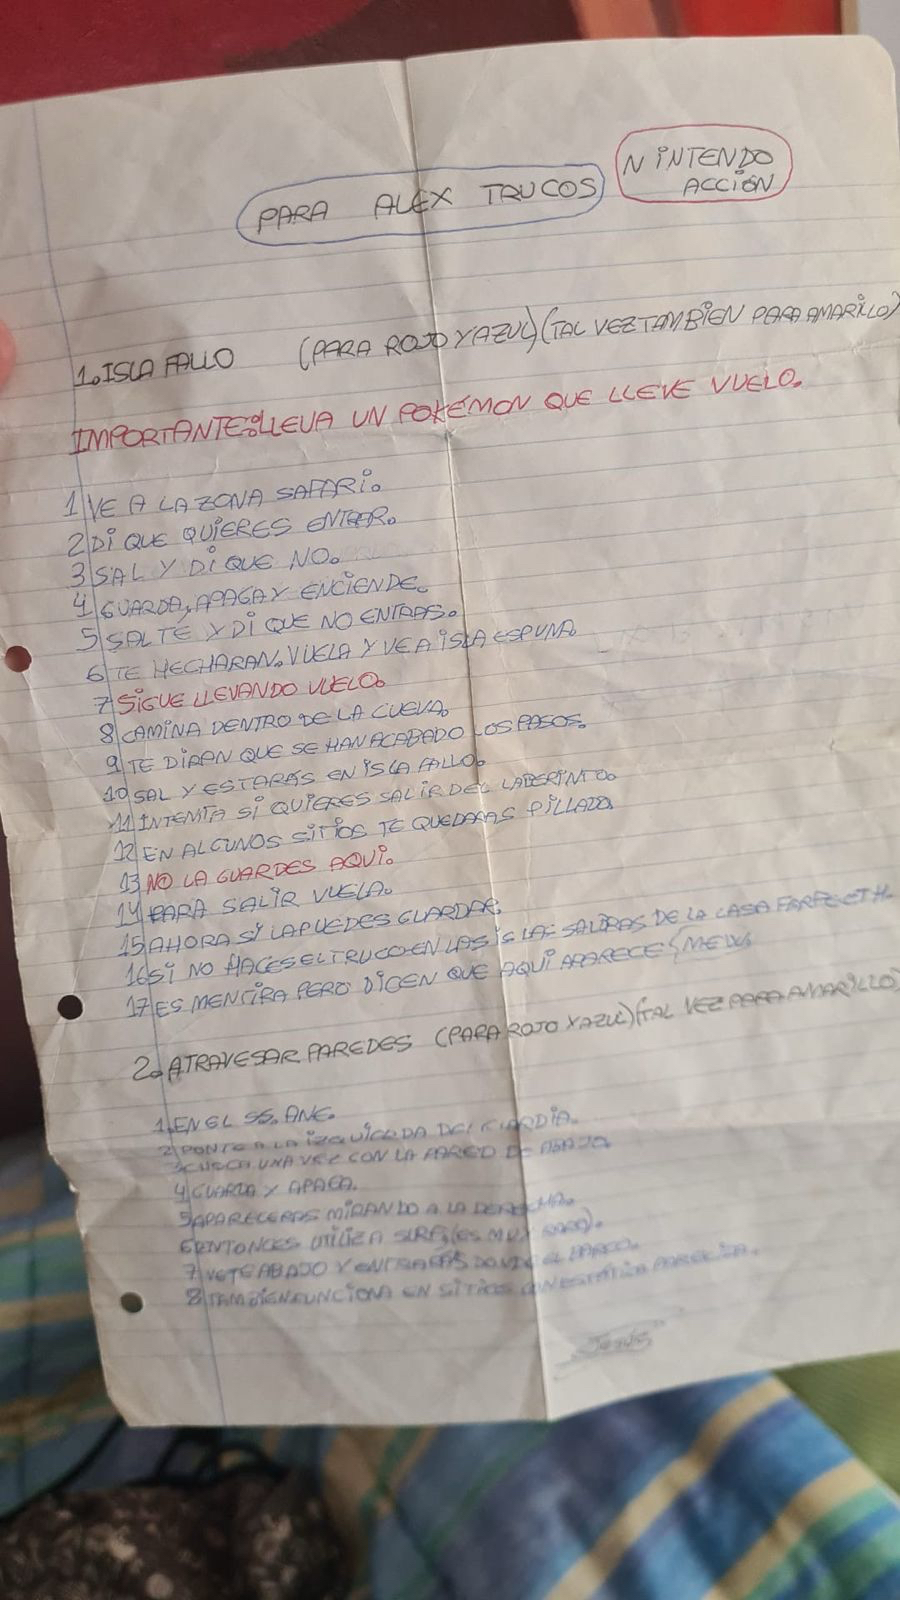 PARA ALEX TRUCOS
NINTENDO
ACCIÓN
1. ISLA FALLO (PARA ROJO Y AZUL) (TAL VEZ TAMBIEN PARA AMARILLO)
IMPORTANTE: LLEVA UN POKÉMON QUE LLEVE VUELO.
1 VE A LA ZONA SAFARI.
2 DI QUE QUIERES ENTRAR.
3 SAL Y DI QUE NO.
4 GUARDA, APAGA Y ENCIENDE.
5 SALTE Y DI QUE NO ENTRAS.
6 TE HECHARAN. VUELA Y VE A ISLA ESPUNA
7 SIGUE LLEVANDO VUELO.
8 CAMINA DENTRO DE LA CUEVA.
9 TE DIRAN QUE SE HAN ACABADO LOS PASOS.
10 SAL Y ESTARÁS EN ISLA FALLO.
11 INTENTA SI QUIERES SALIR DEL LABERINTO.
12 EN ALGUNOS SITIOS TE QUEDARAS PILLADO.
13 NO LA GUARDES AQUI.
14 PARA SALIR VUELA.
15 AHORA SI LA PUEDES GUARDAR
16 SI NO HACES EL TRUCO EN LAS LAS SALDRAS DE LA CASA
17 ES MENTIRA PERO DICEN QUE AQUI APARECE MEW
2. ATRAVESAR PAREDES (PARA ROJO Y AZUL) (TAL VEZ PARA AMARILLO)
1 EN EL SS. ANE.
2 PONTE A LA IZQUIERDA DEL GUARDIA.
3 CHOCA UNA VEZ CON LA PARED DE ABAJO
4 GUARDA Y APAGA.
5 APARECERAS MIRANDO A LA DERECHA.
6 ENTONCES UTILIZA SURF (ES MUY RARO).
7 VETE ABAJO Y ENTRARAS DONDE EL BARCO.
8 TAMBIEN FUNCIONA EN SITIOS CON ESTÁTICA PARECIDA.